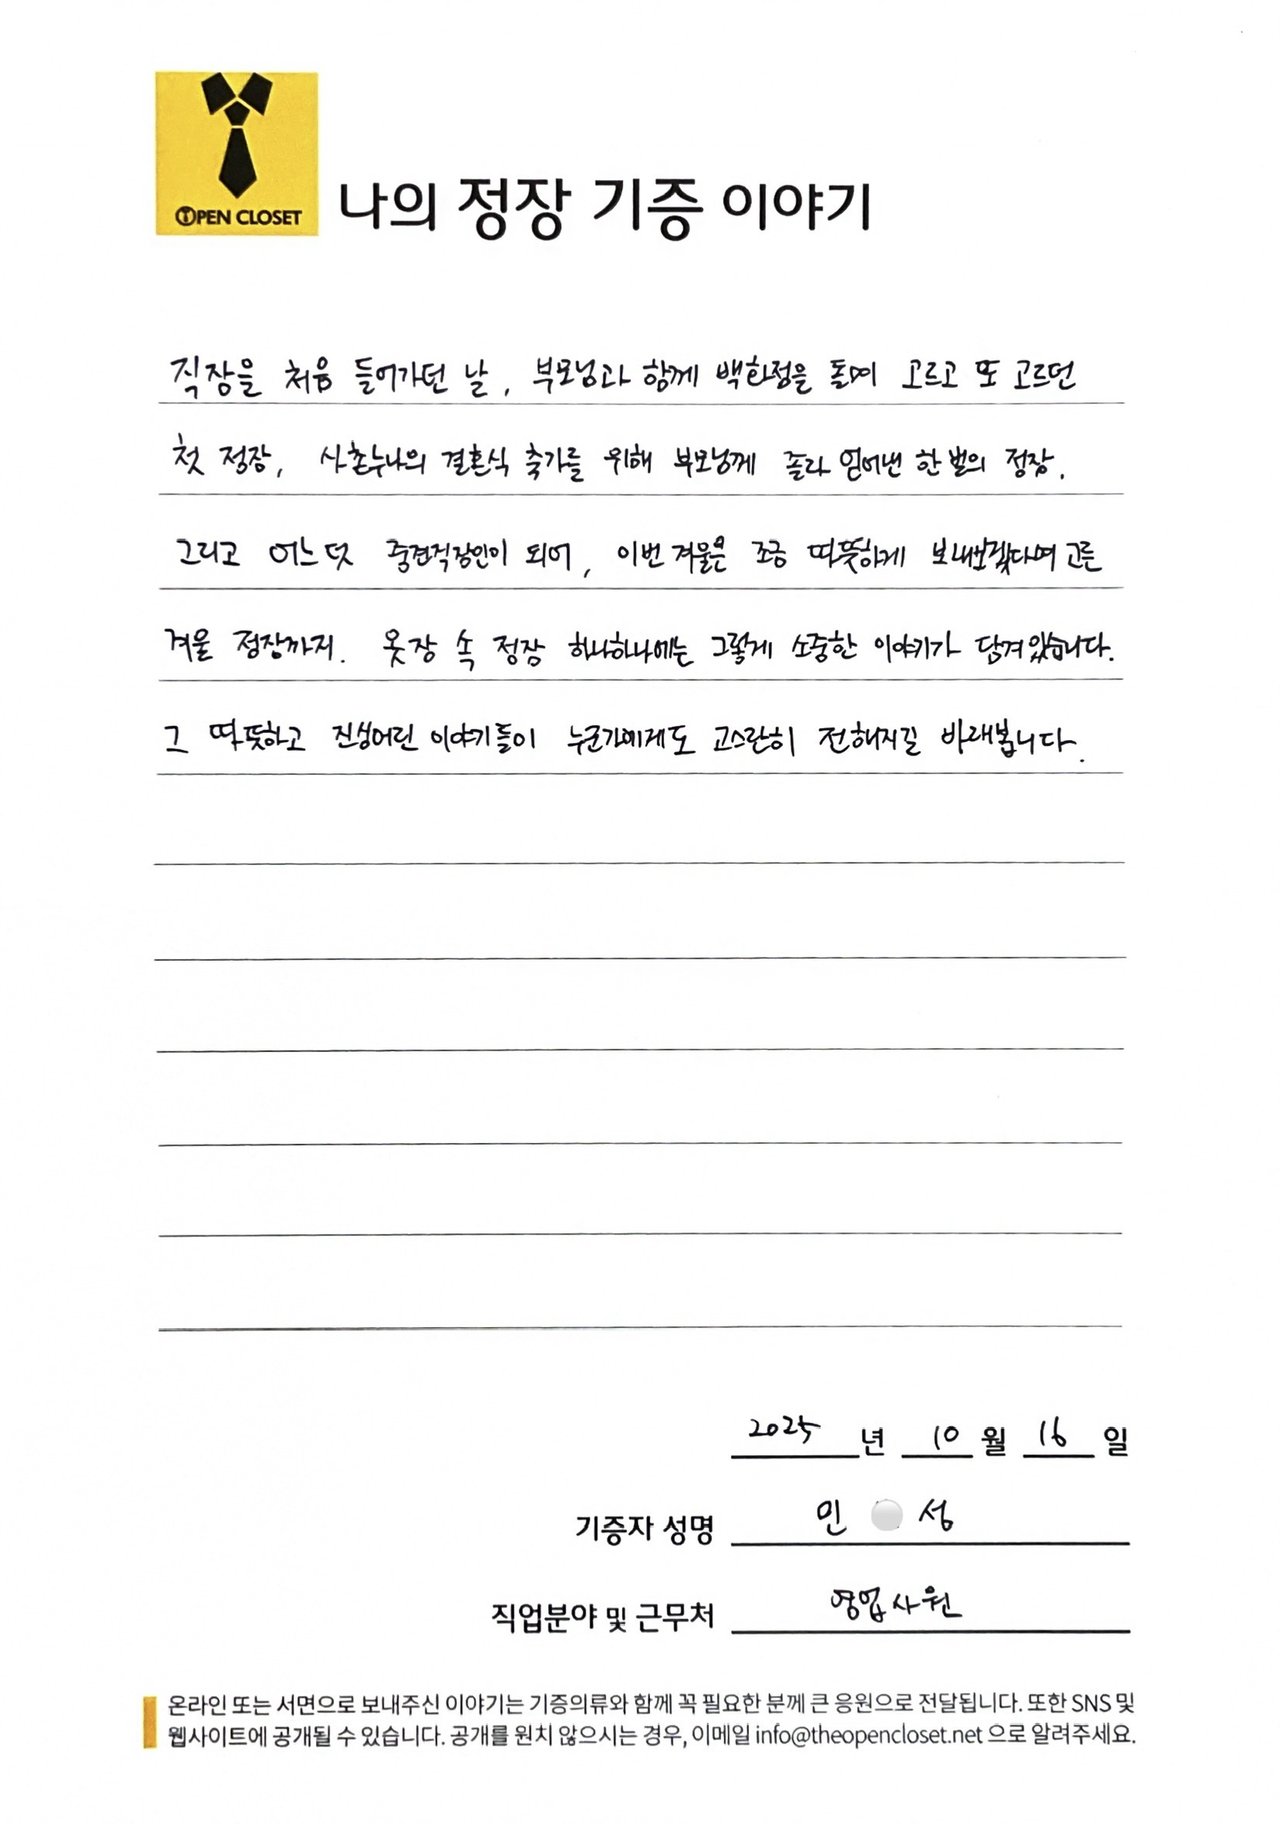 OPEN CLOSET
나의 정장 기증 이야기
직장을 처음 들어가던 날, 부모님과 함께 백화점을 돌며 고르고 또 고르던
첫 정장, 사촌누나의 결혼식 축가를 위해 부모님께 졸라 얻어낸 한 벌의 정장.
그리고 어느덧 중견직장인이 되어, 이번 겨울은 조금 따뜻하게 보내보겠다며 고른
겨울 정장까지. 옷장 속 정장 하나하나에는 그렇게 소중한 이야기가 담겨있습니다.
그 따뜻하고 진심어린 이야기들이 누군가에게도 고스란히 전해지길 바래봅니다.
2025 년 10 월 16 일
기증자 성명 민 성
직업분야 및 근무처 영업사원
온라인 또는 서면으로 보내주신 이야기는 기증의류와 함께 꼭 필요한 분께 큰 응원으로 전달됩니다. 또한 SNS 및
웹사이트에 공개될 수 있습니다. 공개를 원치 않으시는 경우, 이메일 info@theopencloset.net 으로 알려주세요.